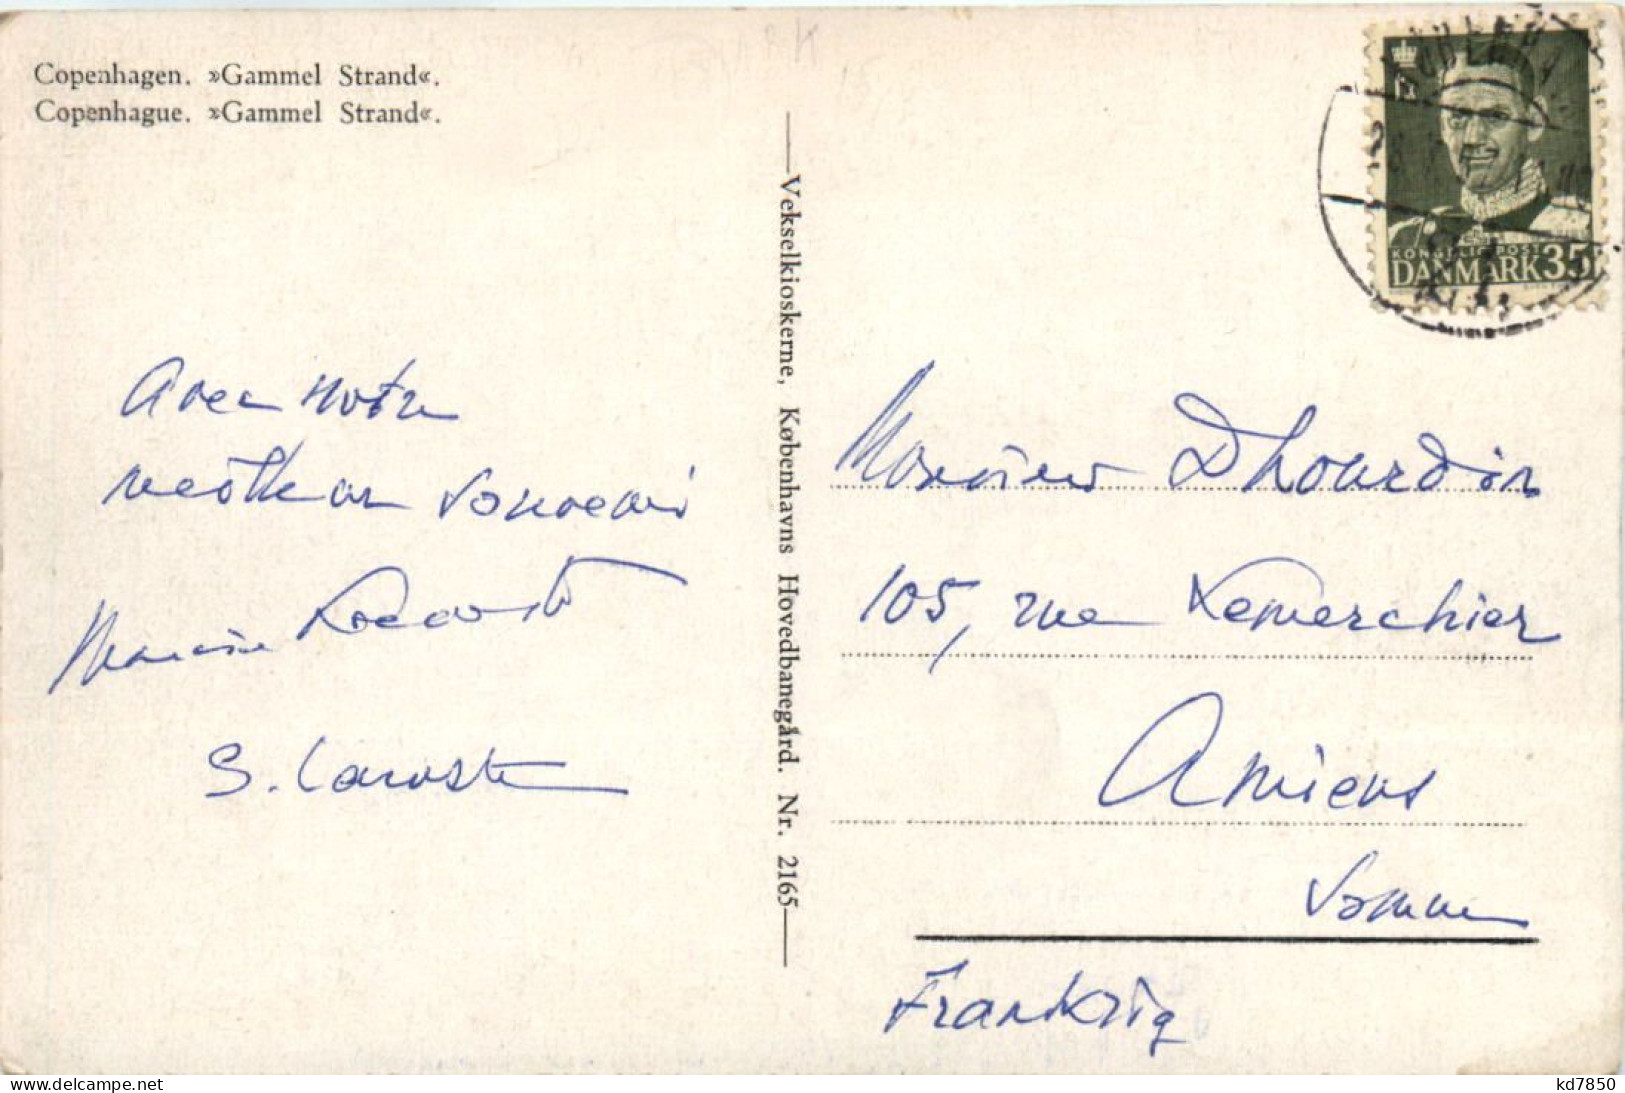 Copenhagen. »Gammel Strand«.
Copenhague. »Gammel Strand«.
Avec notre
meilleur souvenir
Lacoste
S. Lacoste
Vekselkioskerne, Københavns Hovedbanegård. Nr. 2165
KONGELIG POST
DANMARK 35
Monsieur Dhourdin
105, rue Lemerchier
Amiens
Somme
Frankrig
www.delcampe.net
kd7850